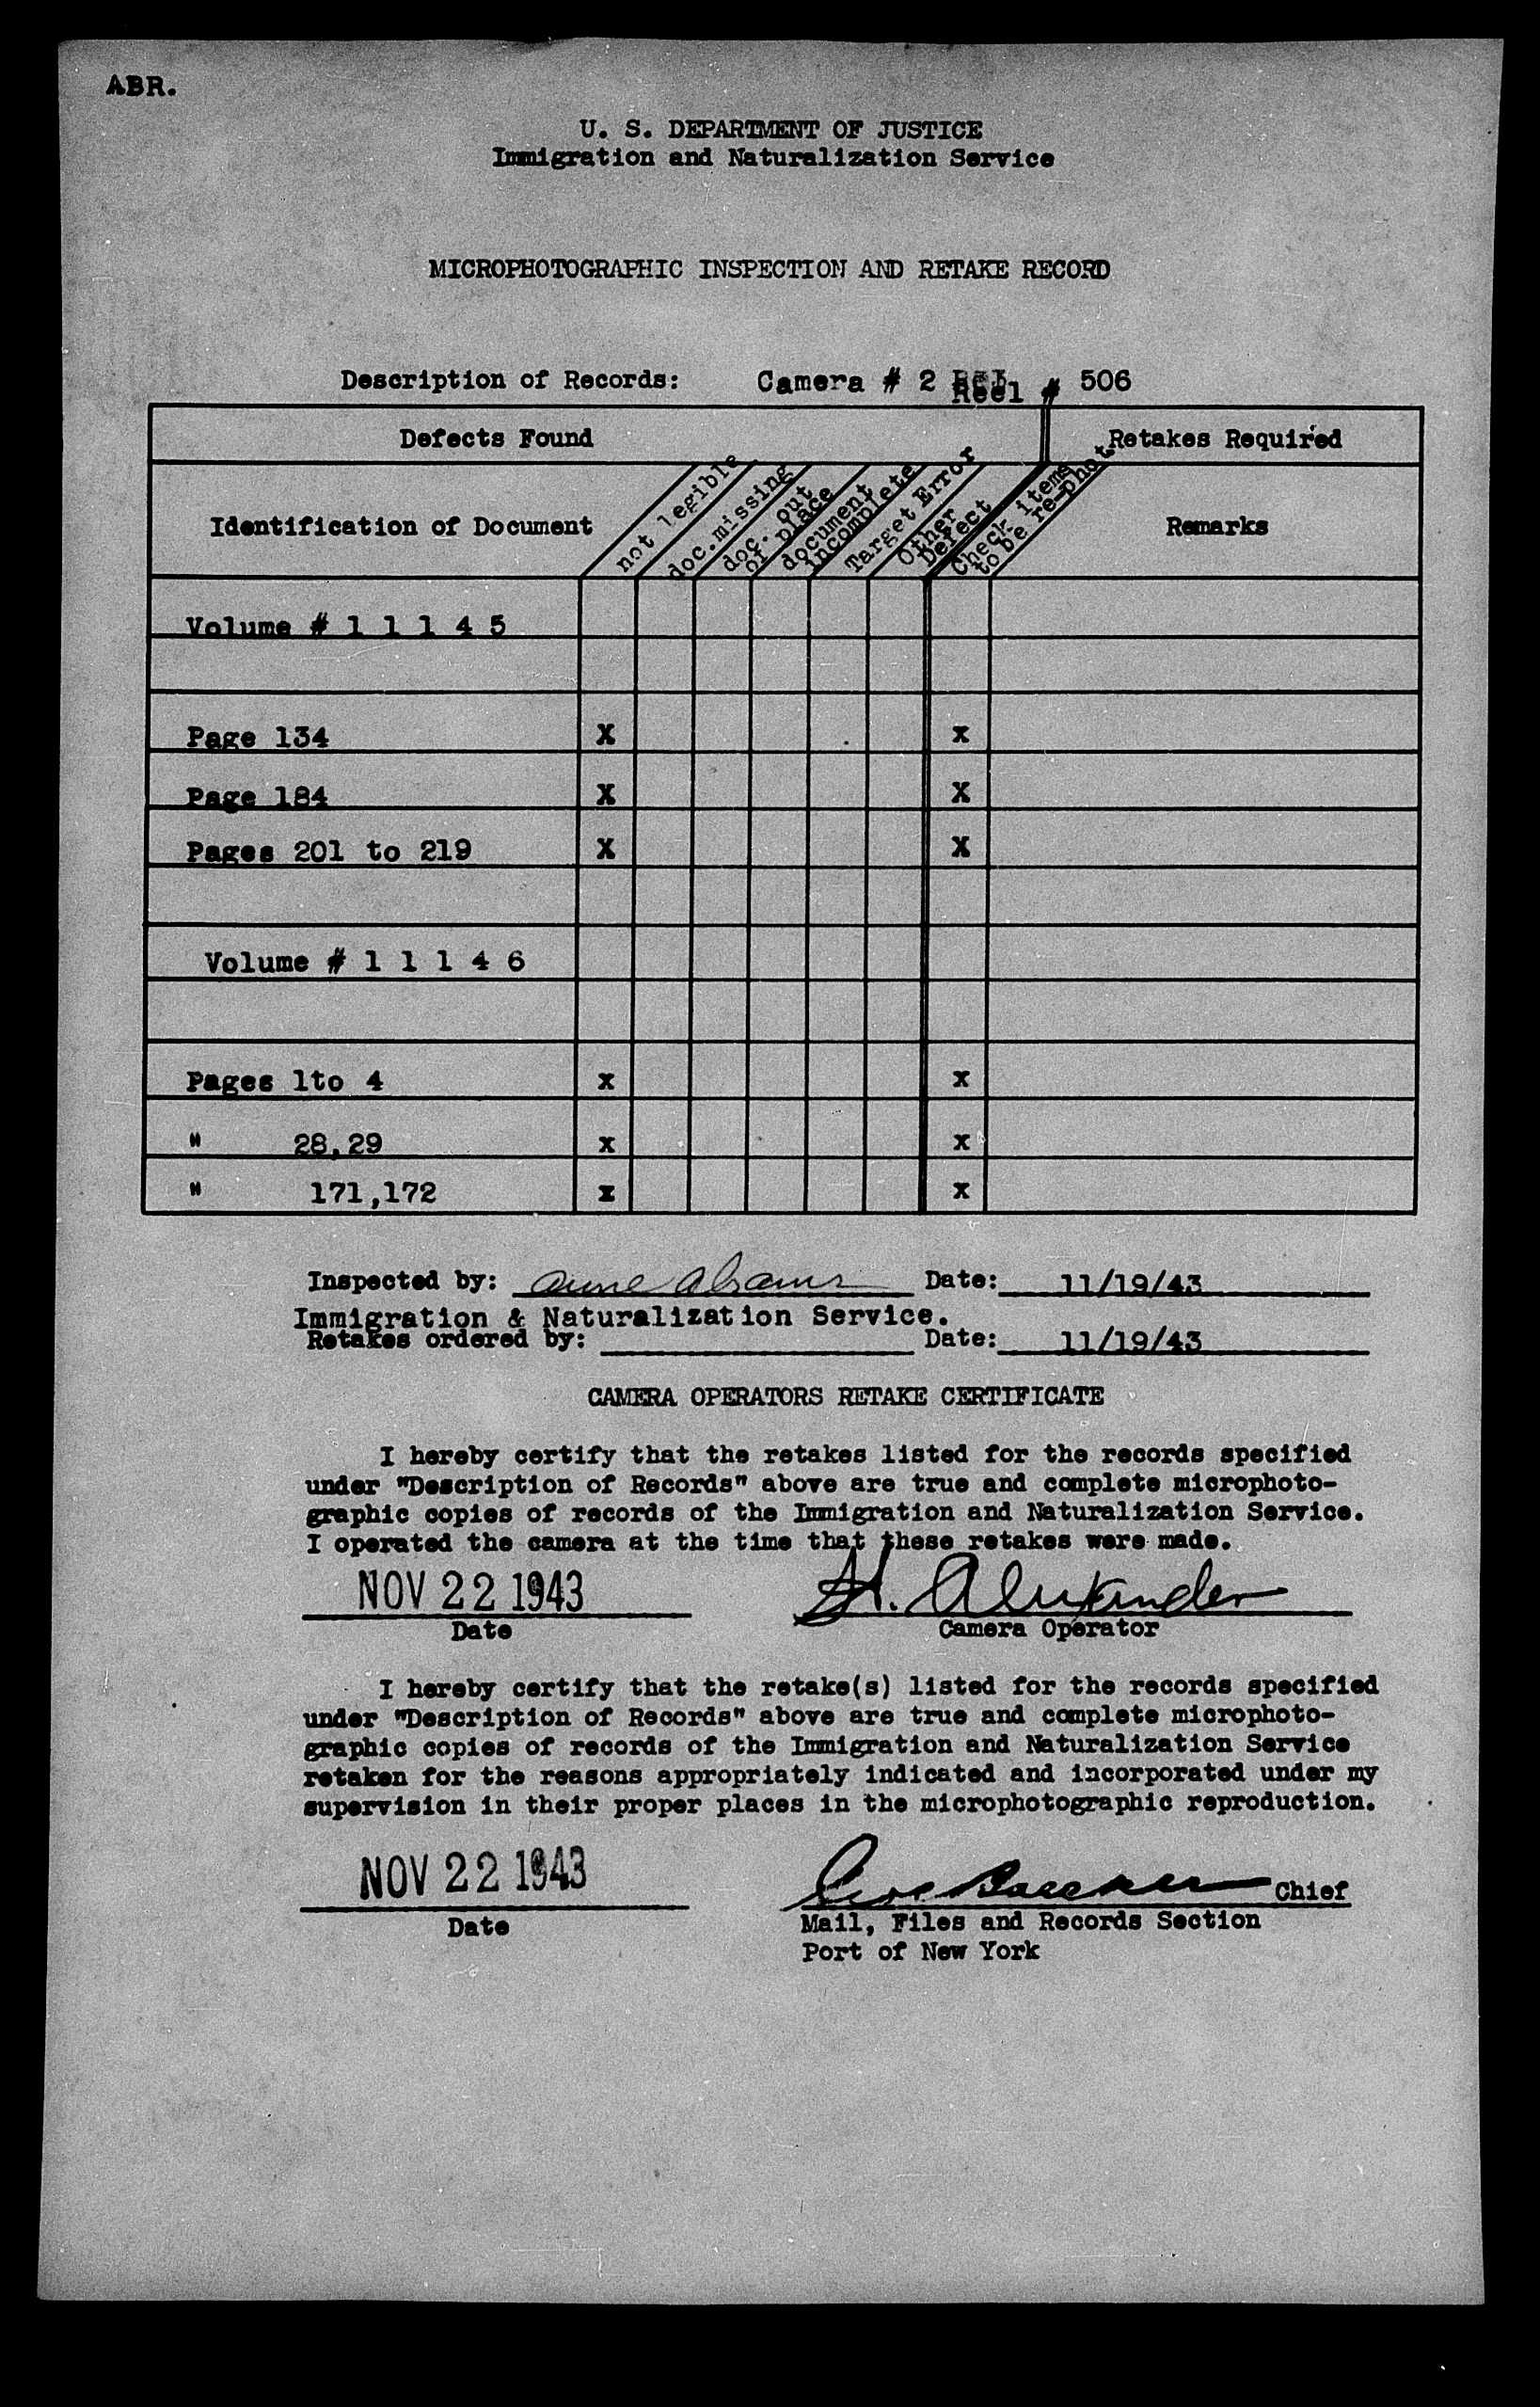 ABR.
U. S. DEPARTMENT OF JUSTICE
Immigration and Naturalization Service
MICROPHOTOGRAPHIC INSPECTION AND RETAKE RECORD
Description of Records: Camera # 2 Reel # 506
Defects Found Retakes Required
Identification of Document
not legible
doc. missing
doc. out
of place
document
incomplete
Target Error
Other
Defect
Check items
to be re-phot
Remarks
Volume # 1 1 1 4 5
Page 134 X x
Page 184 X X
Pages 201 to 219 X X
Volume # 1 1 1 4 6
Pages 1to 4 x x
" 28,29 x x
" 171,172 x x
Inspected by: Anne Abrams Date: 11/19/43
Immigration & Naturalization Service.
Retakes ordered by: Date: 11/19/43
CAMERA OPERATORS RETAKE CERTIFICATE
I hereby certify that the retakes listed for the records specified
under "Description of Records" above are true and complete microphoto-
graphic copies of records of the Immigration and Naturalization Service.
I operated the camera at the time that these retakes were made.
NOV 22 1943 H. Alexander
Date Camera Operator
I hereby certify that the retake(s) listed for the records specified
under "Description of Records" above are true and complete microphoto-
graphic copies of records of the Immigration and Naturalization Service
retaken for the reasons appropriately indicated and incorporated under my
supervision in their proper places in the microphotographic reproduction.
NOV 22 1943 Chief
Date Mail, Files and Records Section
Port of New York